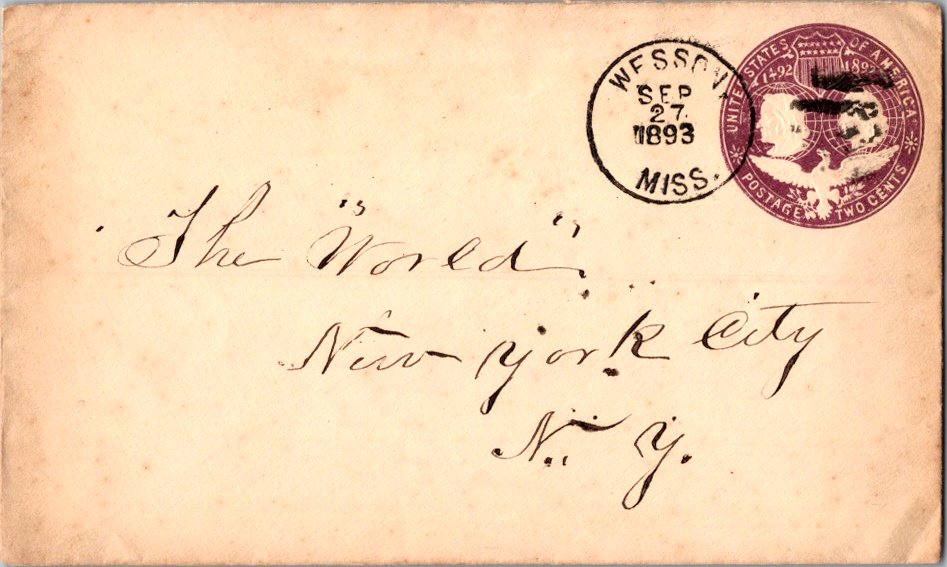 WESSON,
SEP
27
1893
MISS.
UNITED STATES OF AMERICA
1492 1892
POSTAGE TWO CENTS
The "World".
New York City
N. Y.